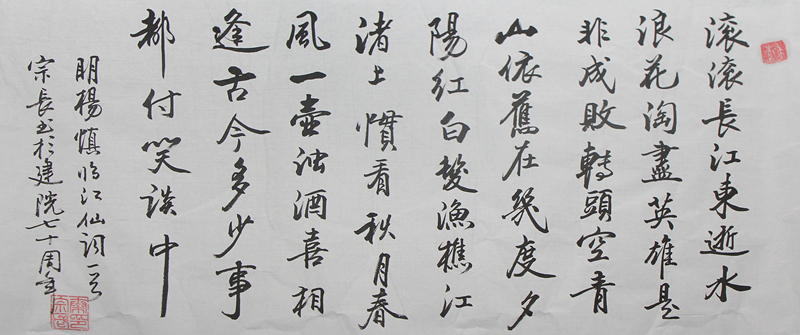 滚滚長江東逝水
浪花淘盡英雄是
非成敗轉頭空青
山依舊在幾度夕
陽紅白髮漁樵江
渚上慣看秋月春
風一壺浊酒喜相
逢古今多少事
都付笑談中
明楊慎临江仙詞一首
宗長书於建院七十周年